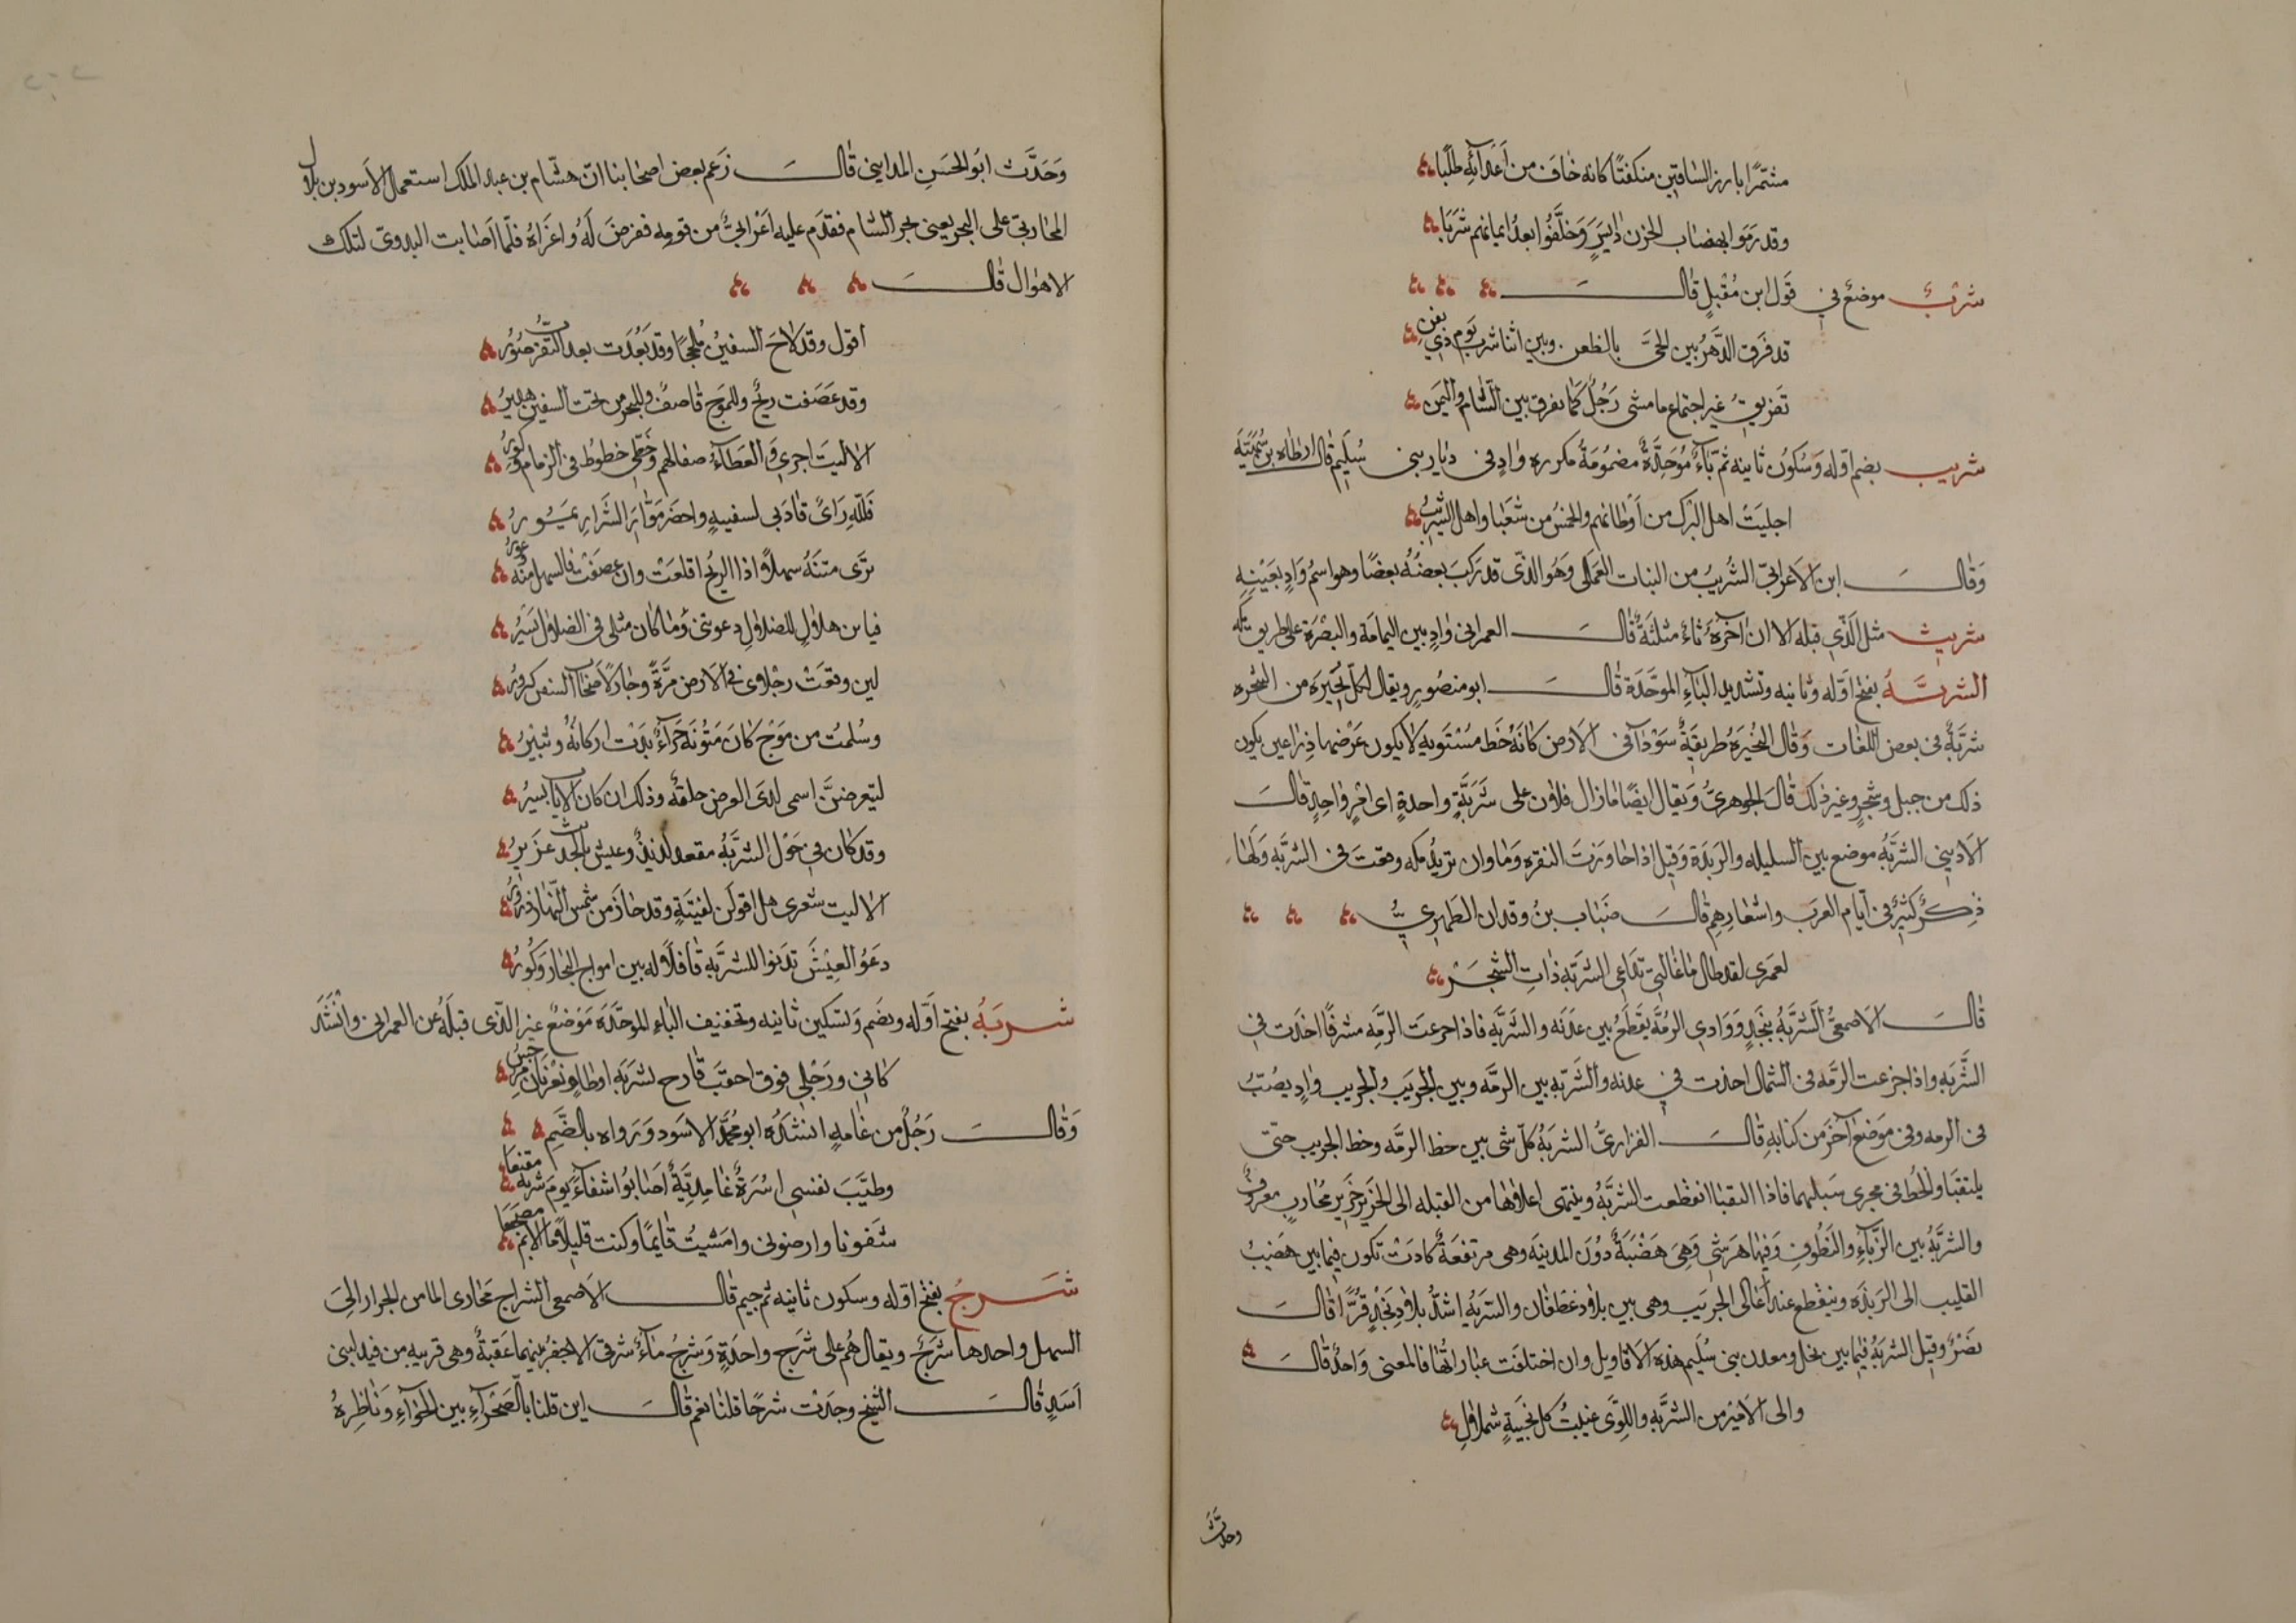 مشمرًا بارز الساقين منكفتًا كانه خاف من أعدآئه طلبا
وقد رموا بهضاب الحزن ذايسر وخلفوا بعد ايمانهم شربا
شربٌ موضع في قول ابن مقبل قال
قد فرق الدهر بين الحيّ بالظعن وبين اثناشرب يوم ذي يقن
تفريق غير اجتماع ما مشى رجل كما تفرق بين الشام واليمن
شربب بضم اوله وسكون ثانيه ثم بآء موحدة مضمومة مكرره واد في ديار بني سُليم قال ارطاه بن سُهيّة
اجليت اهل البرك من أوطانهم والحمس من شعبا واهل الشربب
وقال ابن الاعرابي الشربب من النبات العملى وهو الذي قد ركب بعضه بعضًا وهو اسم واد بعينه
شربث مثل الذي قبله الا ان آخره ثاء مثلثة قال العمراني واد بين اليمامة والبصرة على طريق مكه
الشربَّةُ بفتح اوله وثانيه وتشديد البآء الموحدة قال ابو منصور ويقال لكل نجيرة من الشجره
شربّة في بعض اللغات وقال النحيرة طريقة سودآ في الارض كانه خط مستويه لا يكون عرضها ذراعين يكون
ذلك من جبل وشجر وغير ذلك قال الجوهري ويقال ايضًا ما زال فلان على شربّةٍ واحدةٍ اى امرٍ واحد قال
الاديبي الشربّه موضع بين السليله والربذة وقيل اذا جاوزت النقره وماوان تريد مكه وقعت في الشربّه ولها
ذكر كثير في ايام العرب واشعارهم قال ضباب بن وقدان الطهري
لعمري لقد طال ما غالني تداعى الشربّه ذات الشجر
قال الاصمعي الشربّه بنجدٍ ووادي الرمّة يقطع بين عدنه والشربّه فاذا جزعت الرمّه مشرقًا اخذت في
الشربّه واذا جزعت الرمّه في الشمال اخذت في عدنه والشربّه بين الرمّه وبين الجريب والجريب واد يصبّ
في الرمه وفي موضع آخر من كتابه قال الفزاري الشربّه كل شى بين خط الرمّه وخط الجريب حتى
يلتقيا والخط في مجرى سيلهما فاذا التقيا انقطعت الشربّه وينتهى اعلاها من القبله الى الحزيز حزيز محارب معروف
والشربّه بين الزبآء والنطوف وفيها هرشى وهي هضبةٌ دون المدينه وهي مرتفعة كادت تكون فيما بين هضب
القليب الى الربذه وينقطع عند اعالى الجريب وهي بين بلاد غطفان والشربه اشد بلاد نجدٍ قرًّا قال
نصر وقيل الشربّه فيما بين نخل ومعدن بني سُليم هذه الاقاويل وان اختلفت عباراتها فالمعنى واحد قال
والى الامير من الشربّه واللوى عنيت كل نجيبةٍ شملال
وحدّث
وحدّث ابو الحسن المدايني قال زعم بعض اصحابنا ان هشام بن عبد الملك استعمل الاسود بن بلال
المحاربي على البحر يعني بحر الشام فقدم عليه اعرابيّ من قومه ففرض له واغزاه فلما اصابت البدوىّ لتلك
الاهوال قال
اقول وقد لاح السفين ملججًا وقد بعدت بعد التقرب صور
وقد عصفت ريحٌ وللموج قاصف وللبحر من تحت السفين هدير
الا ليت اجري والعطآء صفا لهم وحظى خطوط في الزمام وكور
فلله رأى قادني لسفينهٍ واحضر موّار الشرار يمور
ترى متنه سهلاً اذا الريح اقلعت وان عصفت فالسهل منه وعور
فيا بن هلال للضلال دعوتني وما كان مثلى في الضلال يسير
لين وقعت رجلاى في الارض مرّة وحان لاصحاب السفين كرور
وسُلمت من موج كان متونه حرآء بدت اركانه وثبير
ليعترضنّ اسمى لدى العرض حلقه وذلك ان كان الاياب يسير
وقد كان في حول الشربّه مقعد لذيذ وعيش بالحديث غزير
الا ليت شعرى هل اقولن لفتيةٍ وقد حان من شمس النهار ذرور
دعو العيس تدنوا للشربّه قافلاً له بين امواج البحار وكور
شربَهُ بفتح اوله ويضم وتسكين ثانيه وتخفيف الباء الموحّدة موضع غير الذي قبله عن العمراني وانشد
كاني ورحلي فوق احقب قارح بشربه اوطاو بعرنان موجس
وقال رجل من غامد انشده ابو محمد الاسود ورواه بالضم
وطيّب نفسي اسرةٌ غامديّةٌ اصابوا شفآء يوم شربه مقنعا
شفونا وارضوني وامشيت قايمًا وكنت قليلاً ما الايم مضجعا
شَرجُ بفتح اوله وسكون ثانيه ثم جيم قال الاصمعي الشراج مجارى الما من الحرار الى
السهل واحدها شرجٌ ويقال هُم على شرج واحدةٍ وشرجُ مآءٌ شرقى الاجفر بينهما عقبةٌ وهي قريبه من فيد لبني
أسدٍ قال الشيخ وجدت شرجًا قلنا نعم قال اين قلنا بالصحرآء بين الجوآء وناظره